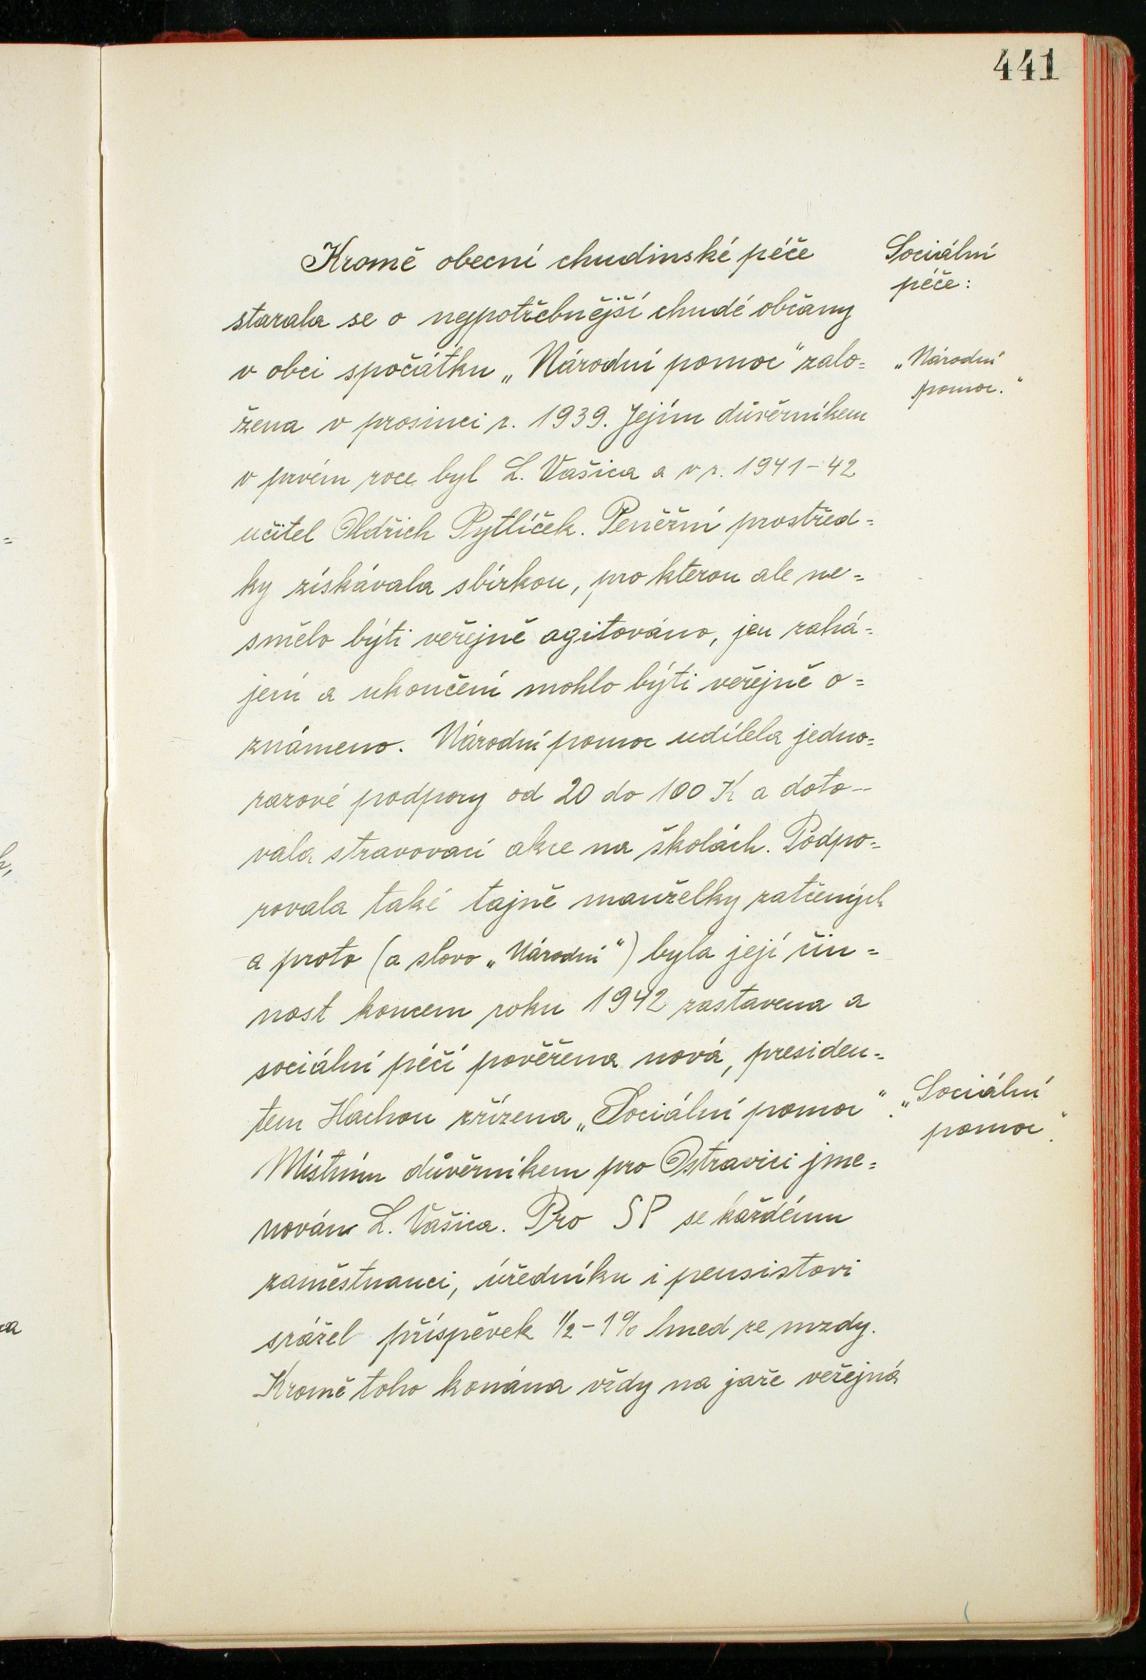 441
Kromě obecní chudinské péče
Sociální
péče:
starala se o nejpotřebnější chudé občany
v obci spočátku „Národní pomoc“ zalo=
„Národní
pomoc.“
žena v prosinci r. 1939. Jejím důvěrníkem
v prvém roce byl L. Vašica a v r. 1941-42
učitel Oldřich Pytlíček. Peněžní prostřed=
ky získávala sbírkou, pro kterou ale ne=
smělo býti veřejně agitováno, jen zahá=
jení a ukončení mohlo býti veřejně o=
známeno. Národní pomoc udílela jedno=
razové podpory od 20 do 100 K a doto-
vala stravovací akce na školách. Podpo=
rovala také tajně manželky zatčených
a proto (a slovo „Národní“) byla její čin=
nost koncem roku 1942 zastavena a
sociální péčí pověřena nová, presiden=
tem Háchou zřízena „Sociální pomoc“.
„Sociální
pomoc“.
Místním důvěrníkem pro Ostravici jme=
nován L. Vašica. Pro SP se každému
zaměstnanci, úředníku i pensistovi
srážel příspěvek ½-1% hned ze mzdy.
Kromě toho konána vždy na jaře veřejná